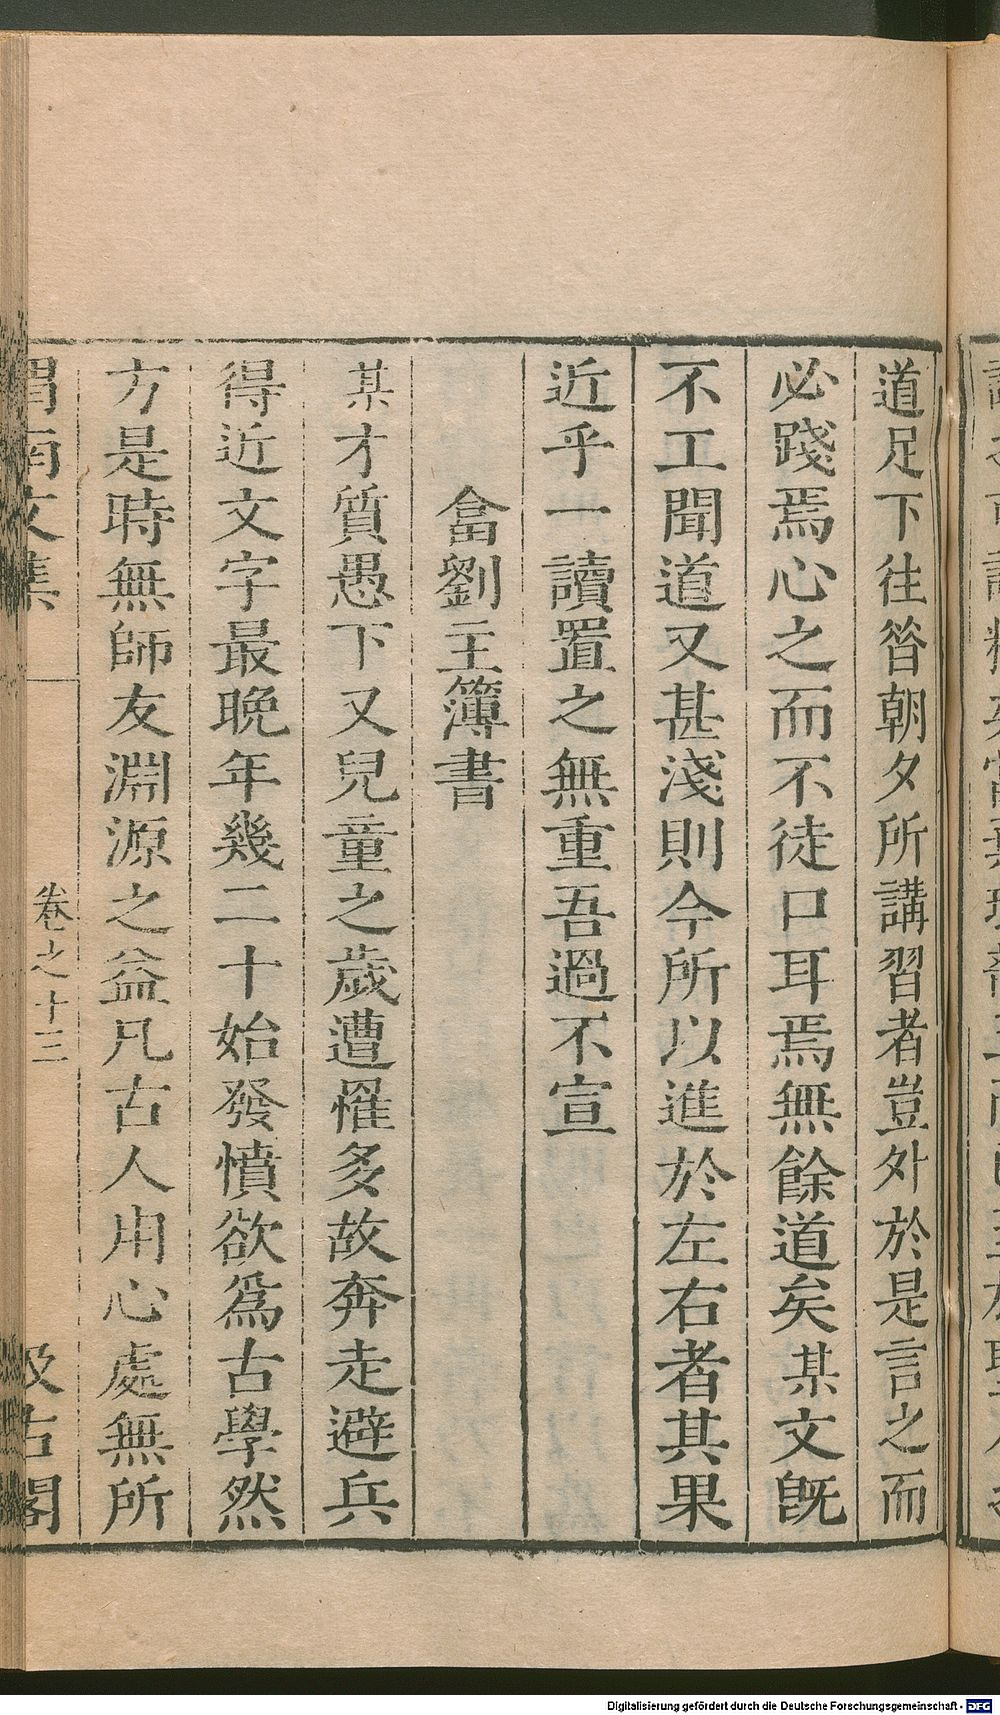 道足下往昝朝夕所講習者豈外於是言之而
必踐焉心之而不徒口耳焉無餘道矣某文旣
不工聞道又甚淺則今所以進於左右者其果
近乎一讀置之無重吾過不宣
畣劉主簿書
某才質愚下又兒童之歲遭罹多故奔走避兵
得近文字最晚年幾二十始發憤欲爲古學然
方是時無師友淵源之益凡古人用心處無所
渭南文集
卷之十三
汲古閣
Digitalisierung gefördert durch die Deutsche Forschungsgemeinschaft - DFG